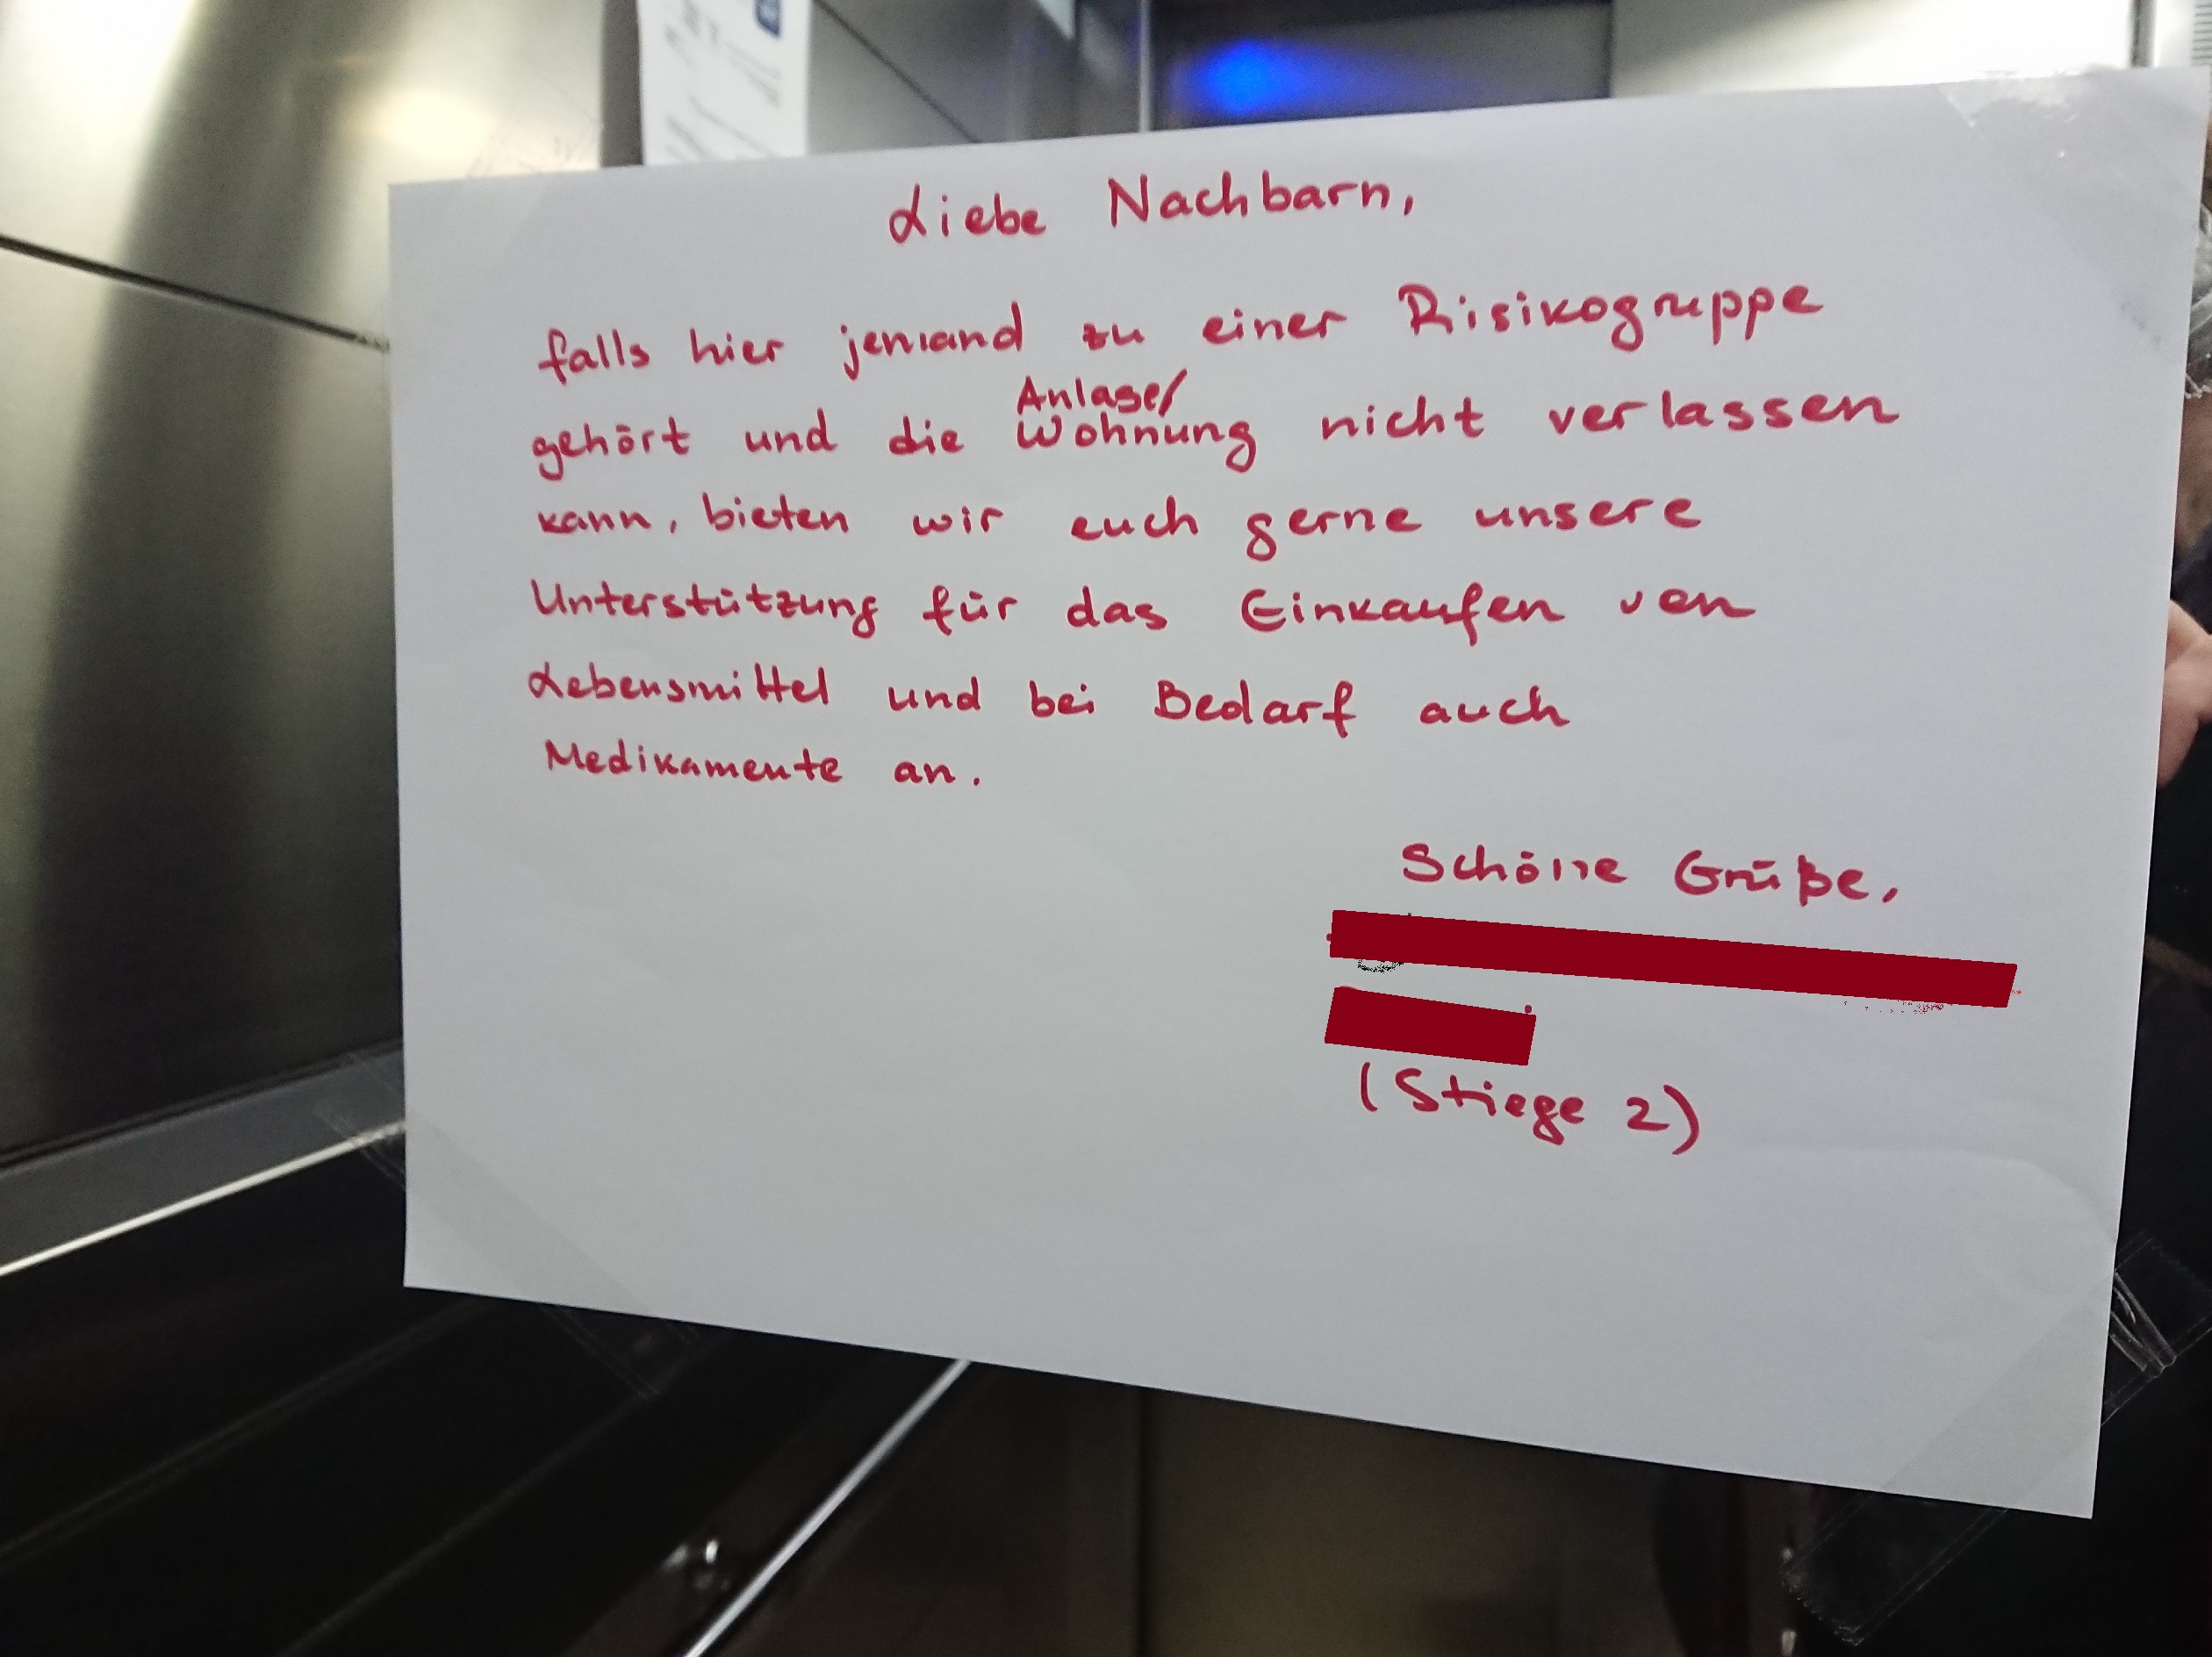 Liebe Nachbarn,
falls hier jemand zu einer Risikogruppe
Anlage/
gehört und die Wohnung nicht verlassen
kann, bieten wir euch gerne unsere
Unterstützung für das Einkaufen von
Lebensmittel und bei Bedarf auch
Medikamente an.
Schöne Grüße,
(Stiege 2)